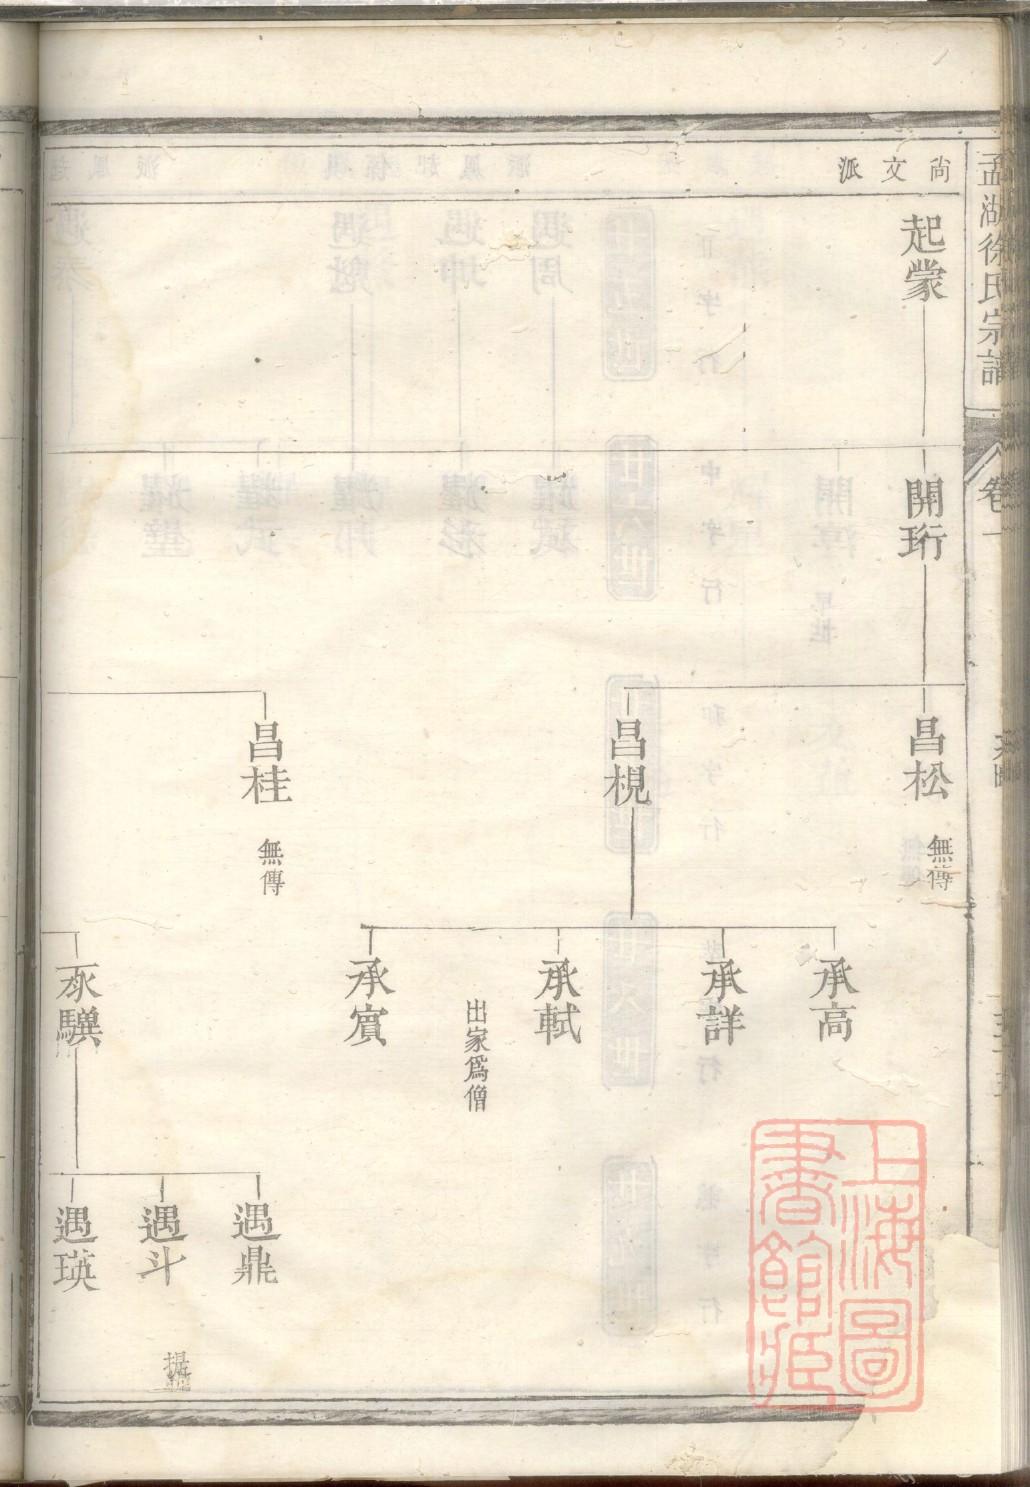 孟湖徐氏宗譜
卷一
尚文派
起蒙
開珩
昌松
無傳
昌梘
昌桂
無傳
承高
承詳
承軾
出家爲僧
承賓
承驥
遇鼎
遇斗
遇瑛
上海圖
書館藏